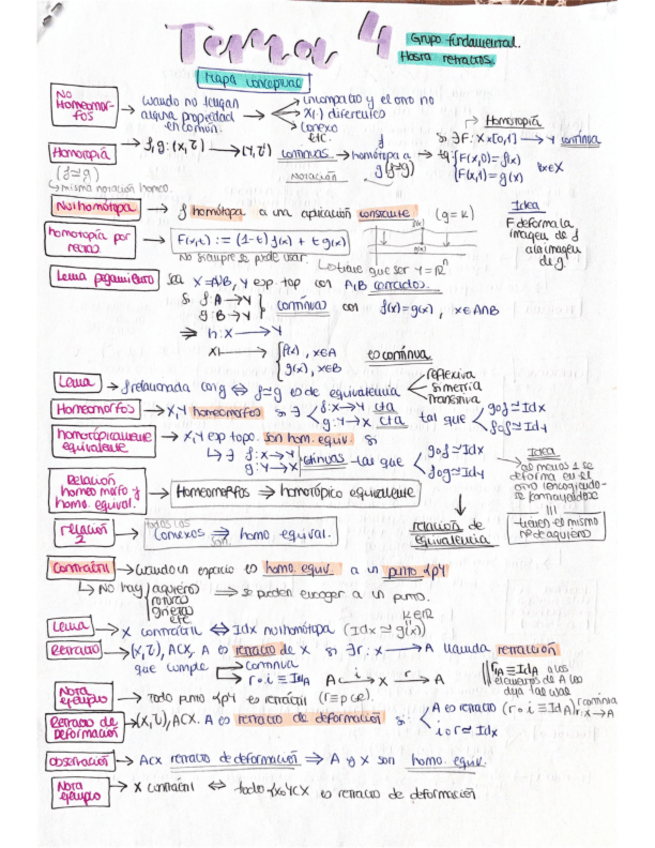 Tema 4
Grupo fundamental.
Hasta retractos.
Mapa conceptual
No Homeomorfos → cuando no tengan alguna propiedad en común. → uno compacto y el otro no
X(·) diferentes
Conexo
etc.
Homotopía → f,g: (X,τ) → (Y,τ') continuas → f homótopa a g (f≃g)
(f≃g)
misma notación homeo.
notación
→ Homotopía
si ∃F: X×[0,1] → Y continua
tq: {F(x,0)=f(x)
{F(x,1)=g(x)
∀x∈X
Nulhomótopa → f homótopa a una aplicación constante (g=k)
Idea
F deforma la imagen de f a la imagen de g.
homotopía por rectas → F(x,t) := (1-t)f(x) + t g(x)
No siempre se puede usar.
tiene que ser Y=ℝⁿ
f(x)
g(x)
Lema pegamiento → Sea X=A∪B, Y esp. top con A,B cerrados.
Si f: A→Y
g: B→Y } continuas con f(x)=g(x), x∈A∩B
⇒ h: X → Y
x → {f(x), x∈A
{g(x), x∈B
es continua.
Lema → f relacionada con g ⇔ f≃g es de equivalencia
reflexiva
simetría
transitiva
Homeomorfos → X,Y homeomorfos si ∃ f: X→Y cta
g: Y→X cta tal que
g∘f=Idx
f∘g=Idy
homotópicamente equivalente → X,Y esp topo. son hom. equiv. si
↳ ∃ f: X→Y
g: Y→X continuas tal que
g∘f≃Idx
f∘g≃Idy
Idea
al menos 1 se deforma en el otro
tienen el mismo nº de agujeros
Relación homeomorfo y homo. equival. → Homeomorfos ⇒ homotópico equivalente
relación de equivalencia
relación 2 → todos los Conexos ⇒ homo equival.
son
Contráctil → Cuando un espacio es homo. equiv. a un punto {p}
↳ No hay agujeros
etc
⇒ se pueden encoger a un punto.
Lema → X contráctil ⇔ Idx nulhomótopa (Idx ≃ g(x))
k∈ℝ
Retracto → (X,τ), A⊂X, A es retracto de X si ∃r: X → A llamada retracción
que cumple → continua
→ r∘i ≡ IdA A -i→ X -r→ A
r|A ≡ IdA a los elementos de A los deja tal cual
Nota ejemplo → Todo punto {p} es retráctil (r≡p cte).
Retracto de Deformación → (X,τ), A⊂X. A es retracto de deformación si:
A es retracto (r∘i ≡ IdA) r continua r: X→A
i∘r ≃ Idx
observación → A⊂X retracto de deformación ⇒ A y X son homo. equiv.
Nota ejemplo → X contráctil ⇔ todo {x₀}⊂X es retracto de deformación